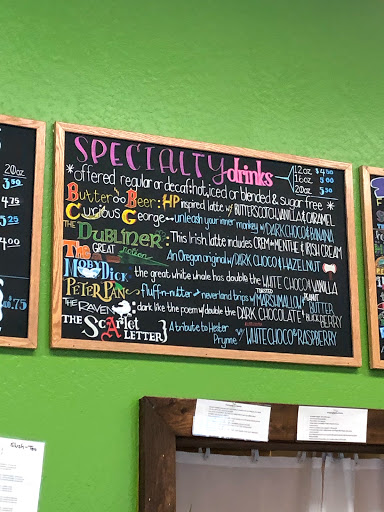 20oz
5.50
4.75
5.25
4.00
SPECIALTY drinks
12oz $4.50
16oz 5.00
20oz 5.50
*offered regular or decaf: hot, iced or blended & sugar free*
Butter Beer: HP inspired latte w/ BUTTERSCOTCH, VANILLA & CARAMEL
Curious George unleash your inner monkey w/ DARK CHOCO & BANANA
THE DUBLINER: This Irish latte includes CREM de MENTHE & IRISH CREAM
The GREAT An Oregon original w/ DARK CHOCO & HAZELNUT
MOBY DICK the great white whale has double the WHITE CHOCO & VANILLA
PETER PAN fluff-n-nutter neverland trips w/ TOASTED MARSHMALLOW & PEANUT BUTTER
THE RAVEN: dark like the poem w/ double the DARK CHOCOLATE & BLACKBERRY
THE SCARLET LETTER} A tribute to Hester Prynne w/ WHITE CHOCO & RASPBERRY